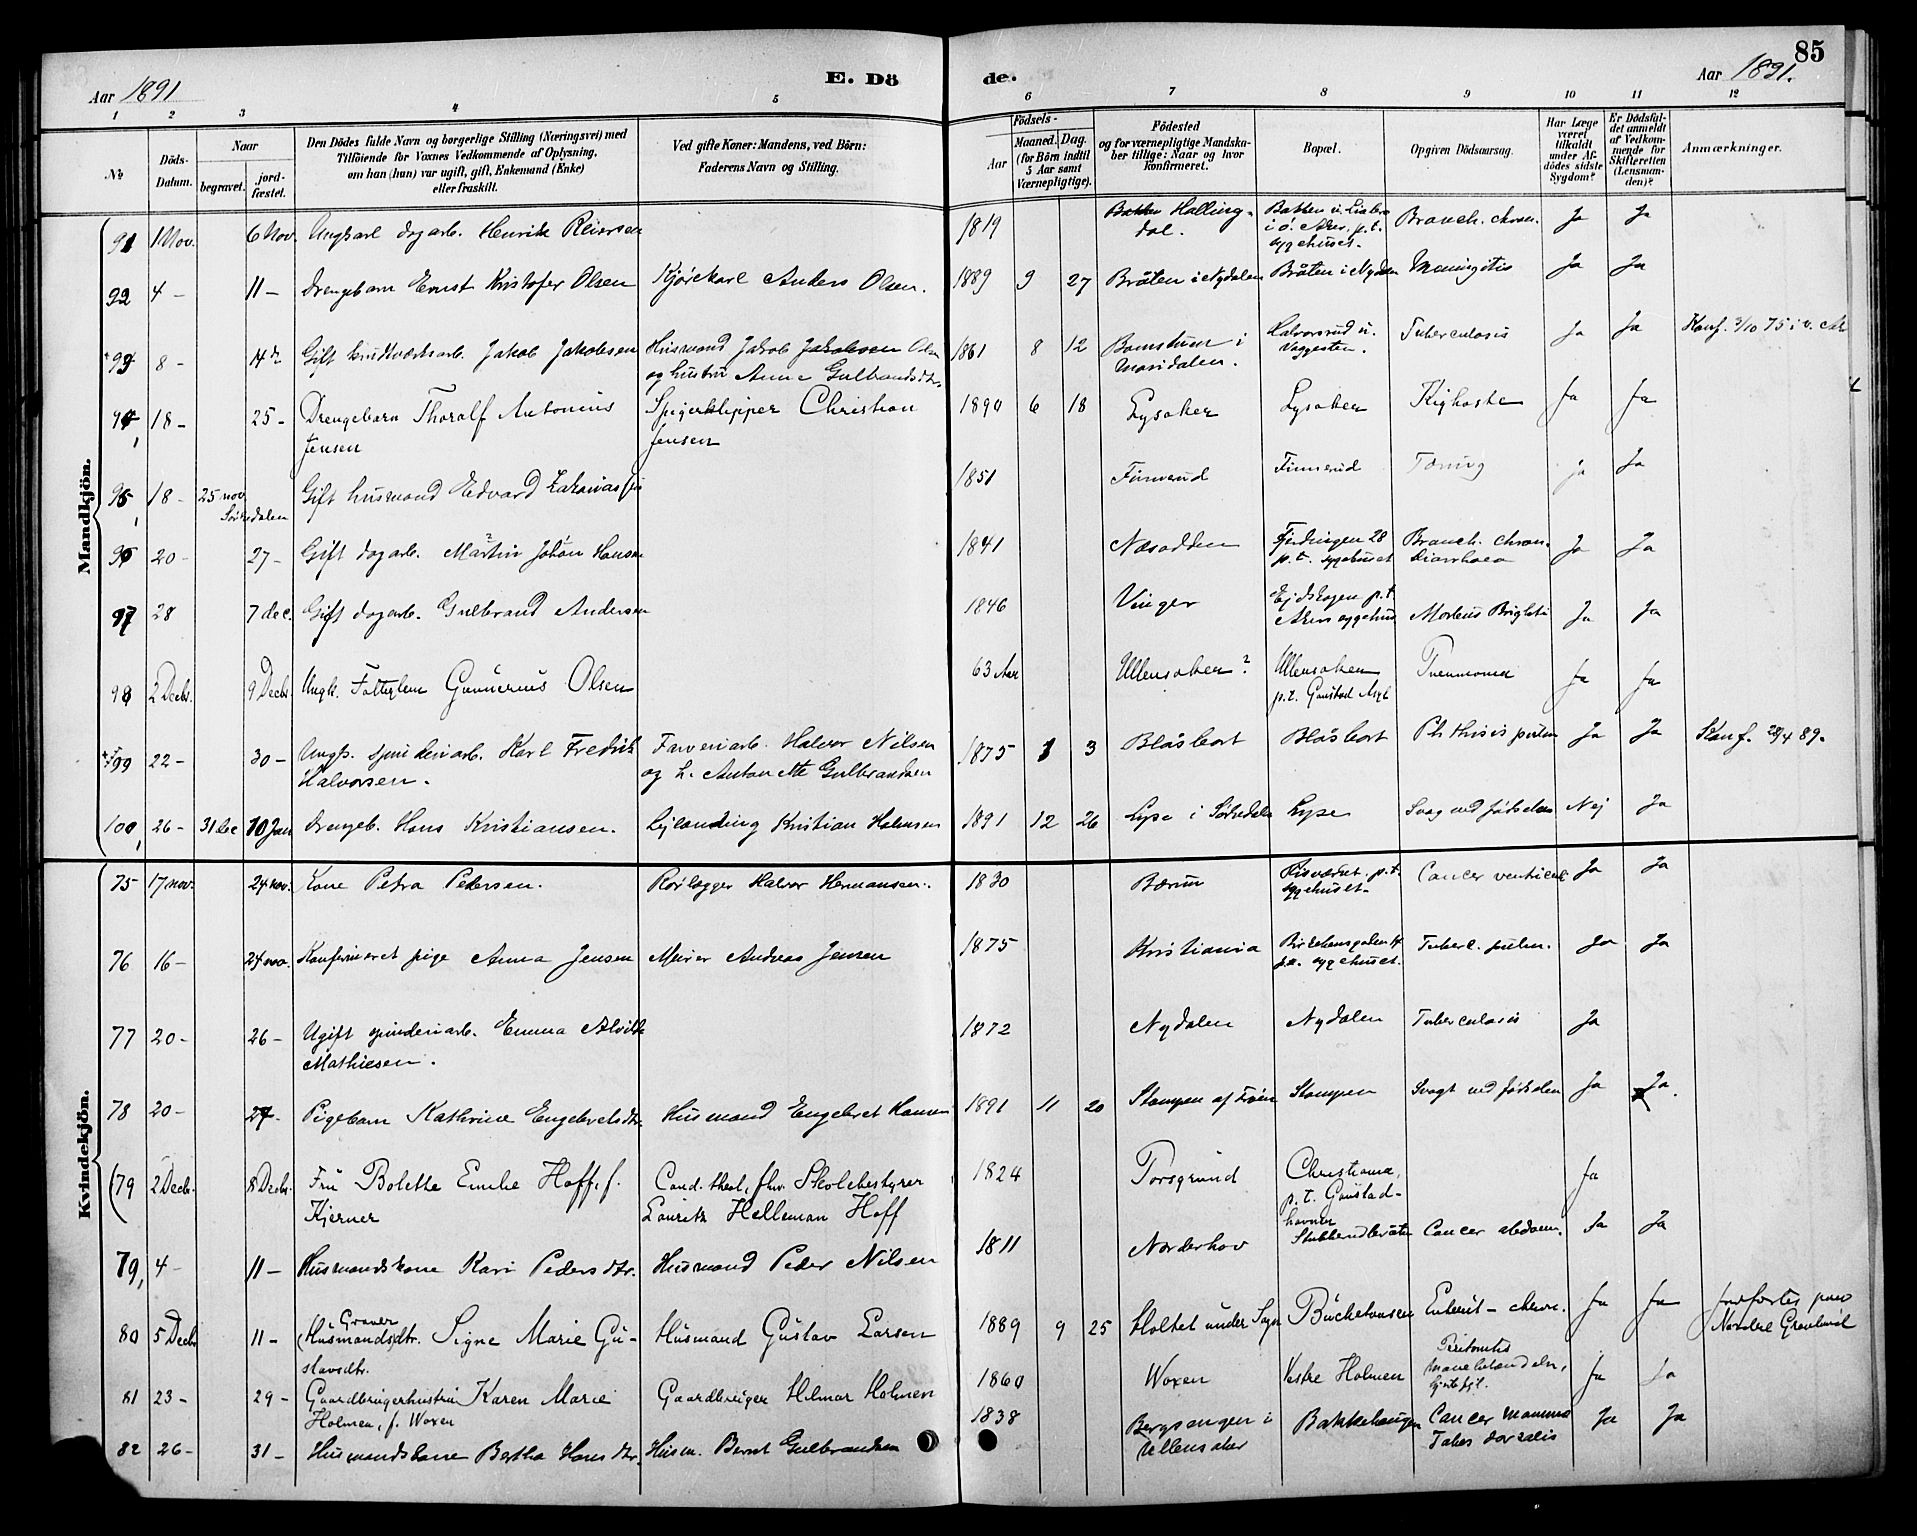 85
Aar 1891
E. Dö
de.
Aar 1891.
1 2 3 4 5 6 7 8 9 10 11 12
No
Döds-Datum.
Naar
begravet.
jord-fæstet.
Den Dödes fulde Navn og borgerlige Stilling (Næringsvei) med
Tilföiende for Voxnes Vedkommende af Oplysning,
om han (hun) var ugift, gift, Enkemand (Enke)
eller fraskilt.
Ved gifte Koner: Mandens, ved Börn:
Faderens Navn og Stilling.
Födsels-
Aar
Maaned. Dag.
(for Börn indtil
5 Aar samt
Værnepligtige).
Födested
og for værnepligtige Mandska-
ber tillige: Naar og hvor
konfirmeret.
Bopæl.
Opgiven Dödsaarsag.
Har Læge
været
tilkaldt
under Af-
dödes sidste
Sygdom?
Er Dödsfal-
det anmeldt
af Vedkom-
mende for
Skifteretten
(Lensman-
den)?
Anmærkninger.
Mandkjön.
91 1 Nov. 6 Nov. Ungkarl dagarb. Henrik Reiersen 1819 Halling-
dal. Bakken u. Ljabro
i Ø. Aker, p.t.
sygehuset. Bronch. chron. Ja Ja
92 4 - 11 - Drengebarn Ernst Kristofer Olsen Kjørekarl Anders Olsen. 1889 9 27 Bråten i Nydalen Bråten i Nydalen Meningitis Ja Ja
93 8 - 14 Gift krudtværksarb. Jakob Jakobsen Husmand Jakob Jakobsen Olsen
og hustru Anne Gulbrandsdtr. 1861 8 12 i
Maridalen. Halvorsrud u.
Tuberculosis Ja Ja Konf. 3/10 75 i v. Ak
94 18 - 25 - Drengebarn Thoralf Antonius
Jensen Spigerklipper Christian
Jensen 1890 6 18 Lysaker Lysaker Kighoste Ja Ja
95 18 - 25 nov
Sørkedalen Gift husmand Edvard Zakarias 1851 Finnerud Finnerud Tæring ja Ja
96 20 - 27 - Gift dagarb. Martin Johan Hansen 1841 Næsodden Fjerdingen 28
p.t. sygehuset Bronch. chron.
diarrhoea Ja Ja
97 28 7 dec. Gift dagarb. Gulbrand Andersen 1846 Vinger Ejdskogen p.t.
Akers sygehus Morbus Brighti Ja Ja
98 2 Decbr. 9 Decbr. Ungk. Fattiglem Gunnerius Olsen 63 Aar Ullensaker? Ullensaker
p.t. Gaustad Asyl Pneumonia Ja Ja
99 22 - 30 - Ungk. spinderiarb. Karl Fredrik
Halvorsen. Farveriarb. Halvor Nilsen
og h. Antonette Gulbrandsen 1875 3 3 Blåsbort Blåsbort Phthisis pulm Ja Ja Konf. 28/4 89.
100 26 - 31 dec 10 Jan drengeb. Hans Kristiansen. Lejlending Kristian Halvorsen 1891 12 26 Lysa i Sørkedalen Lysa Svag ved fødselen Nej Ja
Kvindekjön.
75 17 nov. 24 nov. Kone Petra Pedersen. Rørlægger Halvor Hermansen. 1830 Bærum p.t.
sygehuset. Cancer ventricul Ja Ja
76 16 - 24 nov. Konfirmeret pige Anna Jensen Murer Andreas Jensen 1875 Kristiania
p.t. sygehuset. Tuberc. pulm. Ja Ja
77 20 - 26 - Ugift spinderiarb. Emma Alvilde
Mathiesen. 1872 Nydalen Nydalen Tuberculosis Ja
78 20 - 27 - Pigebarn Kathrine Engebretsdtr. Husmand Engebret Hansen 1891 11 20 Stampen af Frøen Stampen Svagt ved fødselen Ja Ja.
(79 2 Decbr. 8 Decbr. Fru Bolette Emilie Hoff, f.
Kjerner Cand. theol., fhv. Skolebestyrer
Lauritz Helleman Hoff 1824 Porsgrund Christiania,
p.t. Gaustad- Ja
79, 4 - 11 - Husmandskone Kari Pedersdtr. Husmand Peder Nilsen 1811 Norderhov Stubberudbråten Cancer abdom. Ja Ja
80 5 Decb 11 - Graver
(Husmandsdtr. Signe Marie Gu-
stavsdtr. Husmand Gustav Larsen 1889 9 25 Holtet under Sogn Bückehausen Enterit - chron. Ja Ja Jordfæstes paa
Nordre Gravlund
81 23 - 29 - Gaardbrugerhustru Karen Marie
Holmen, f. Woxen Gaardbruger Hilmar Holmen 1860 Woxen Vestre Holmen Peritonitis
Ja Ja
82 26 - 31 - Husmandskone Bertha Hansdtr. Husm. Bernt Gulbrandsen 1838 Bergsengen i
Ullensaker Bakkehaugen Cancer mamma
Tabes dorsalis Ja Ja